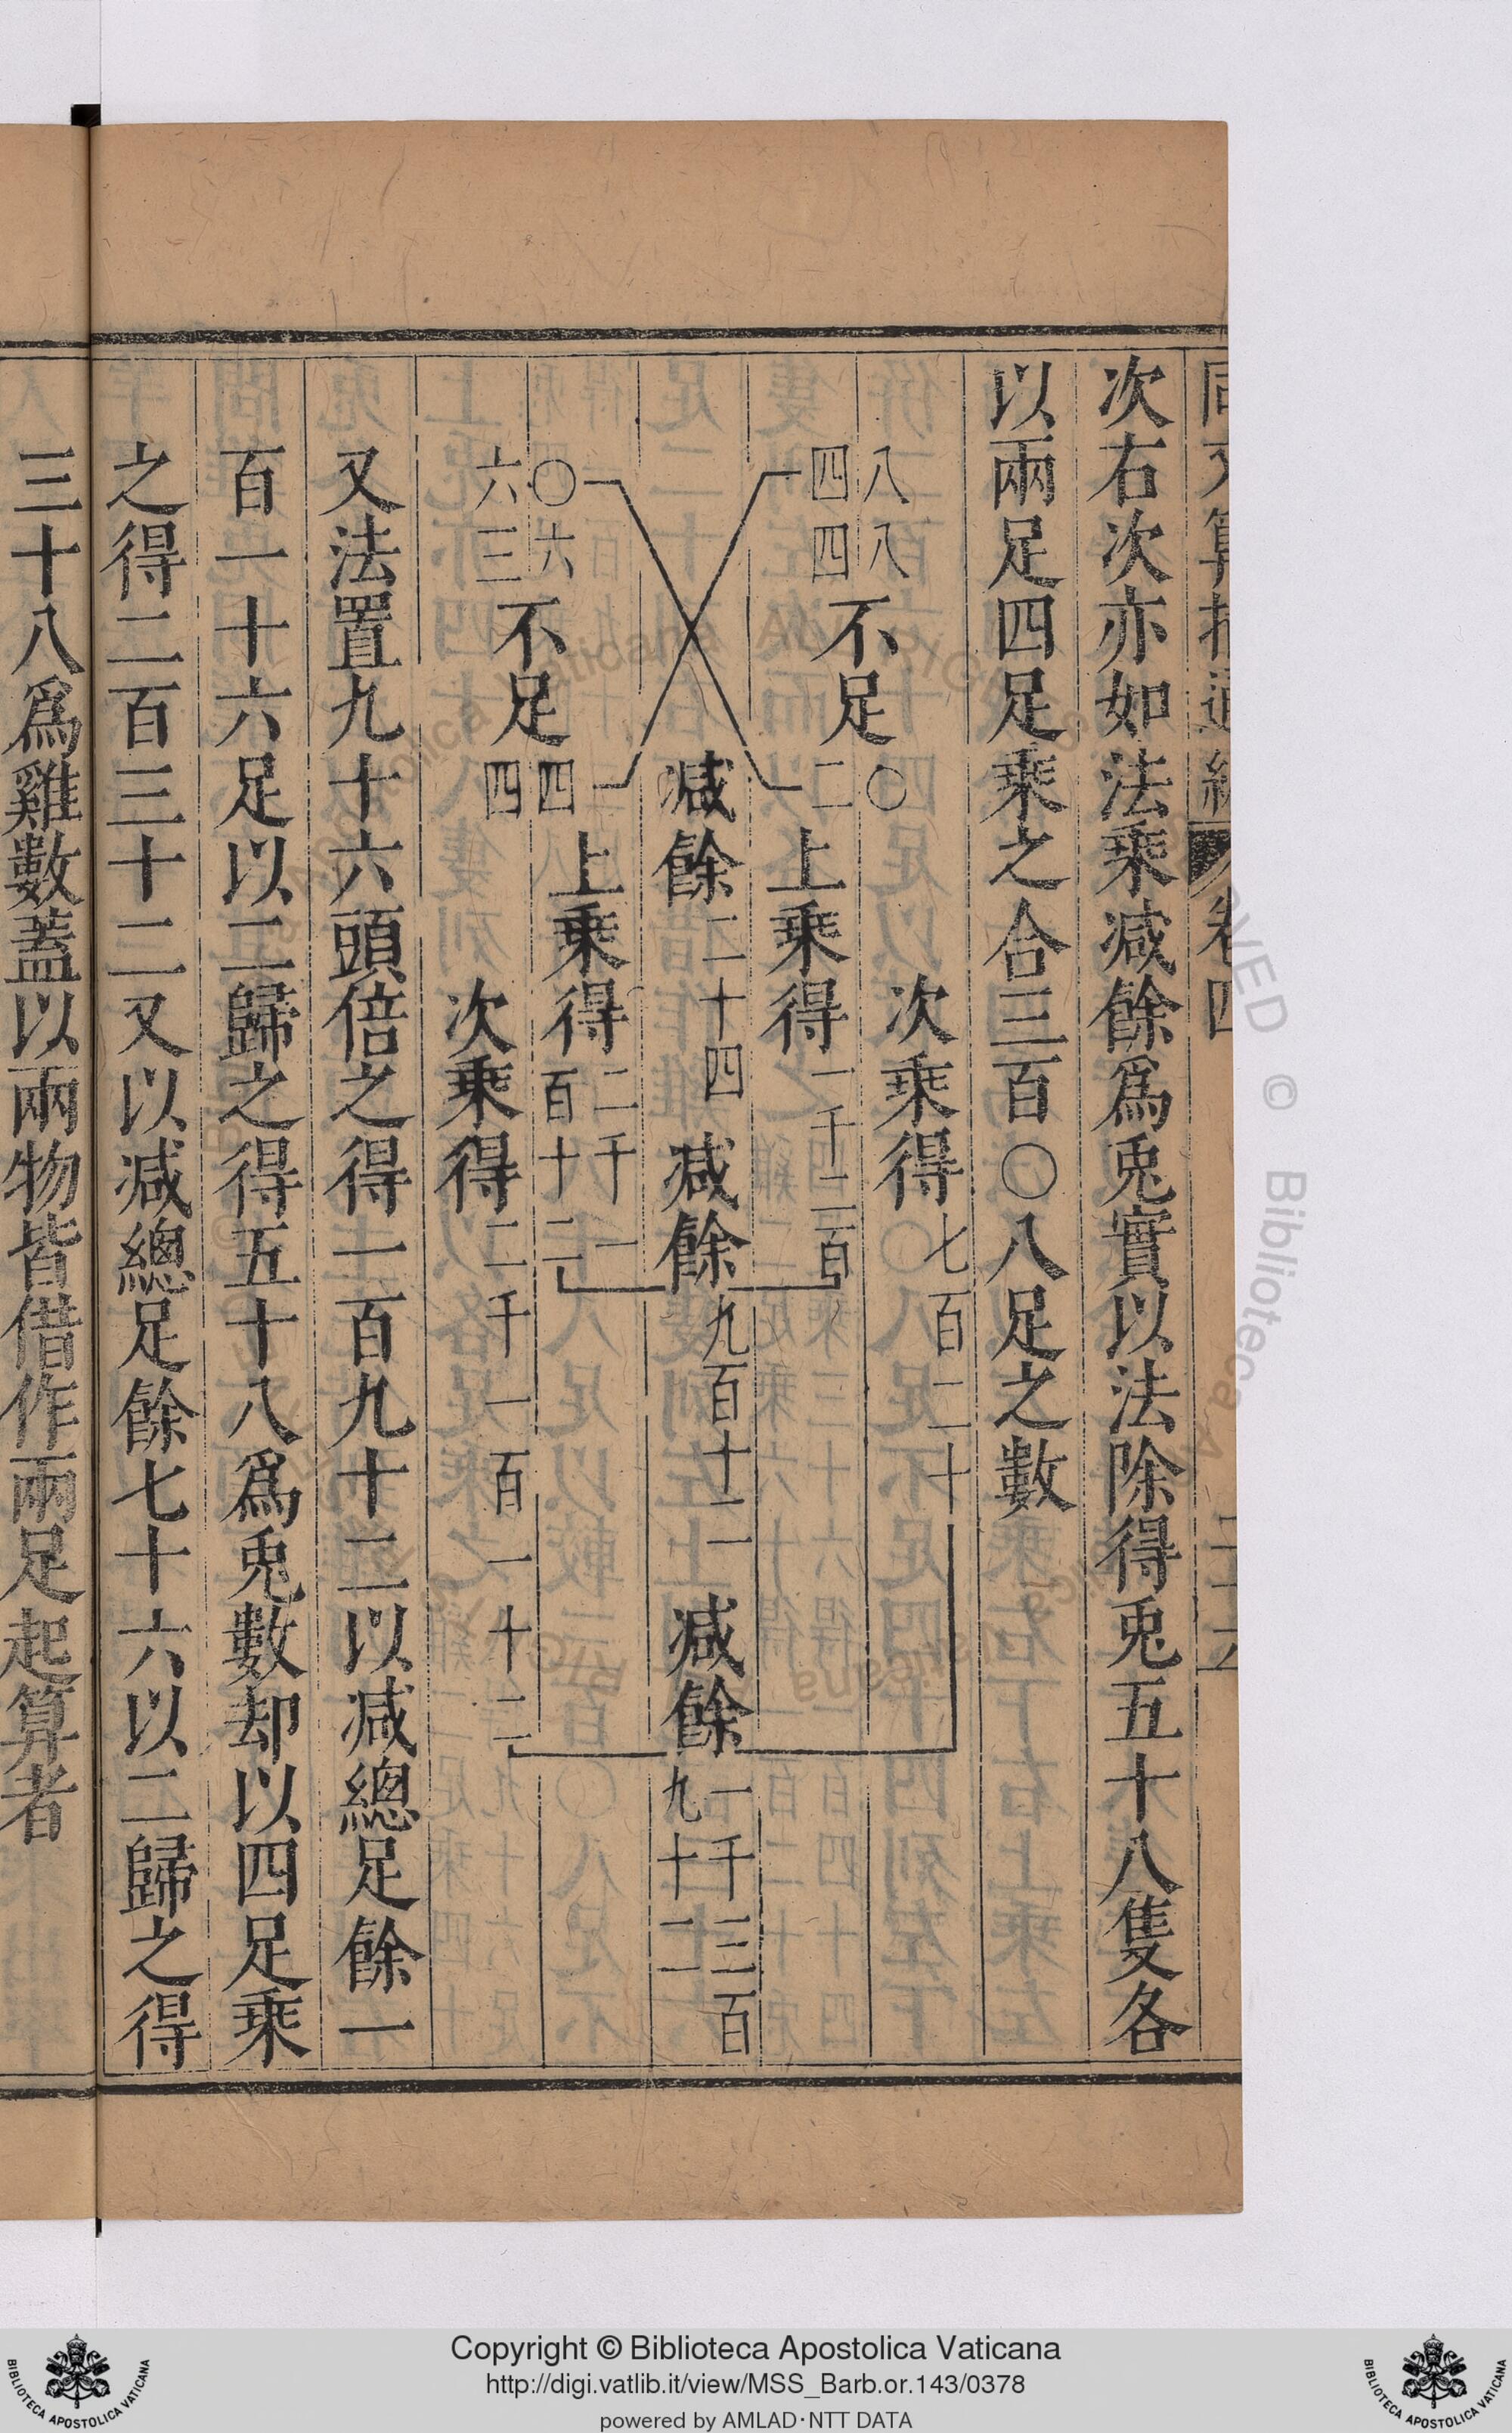 次右次亦如法乘減餘爲兎實以法除得兎五十八隻各
以兩足四足乘之合三百〇八足之數
八八〇次乘得七百二十
四四不足二上乘得一千二百
減餘二十四減餘九百十二減餘一千三百九十二
〇六不足四上乘得二千一百十二
六三四次乘得二千一百一十二
又法置九十六頭倍之得一百九十二以減總足餘一
百一十六足以二歸之得五十八爲兎數却以四足乘
之得二百三十二又以減總足餘七十六以二歸之得
三十八爲雞數蓋以兩物皆借作兩足起算者
卷四
Copyright © Biblioteca Apostolica Vaticana
http://digi.vatlib.it/view/MSS_Barb.or.143/0378
powered by AMLAD·NTT DATA
BIBLIOTECA APOSTOLICA VATICANA
BIBLIOTECA APOSTOLICA VATICANA